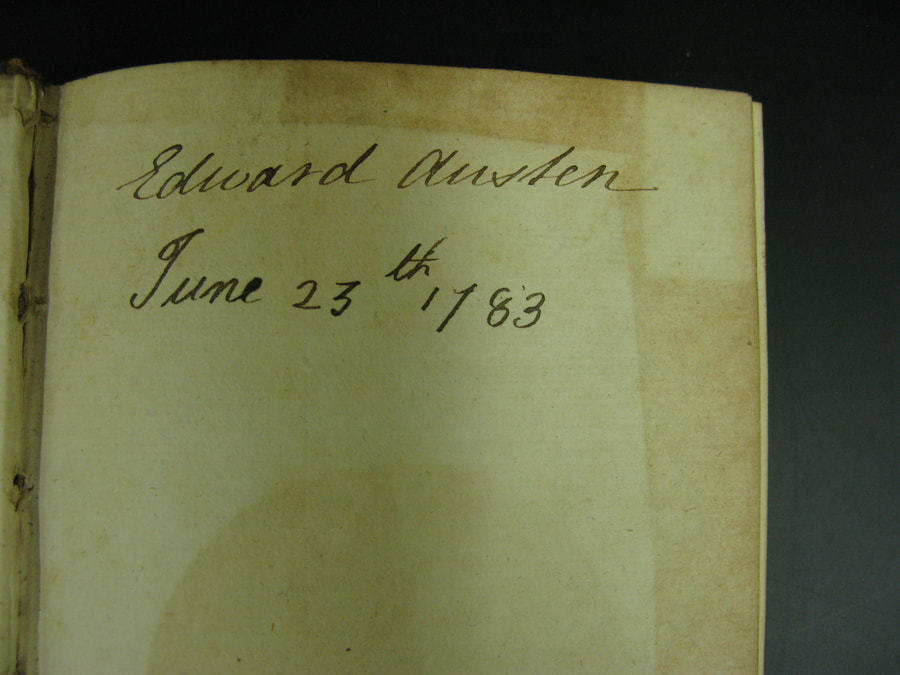 Edward Austen
June 23th 1783